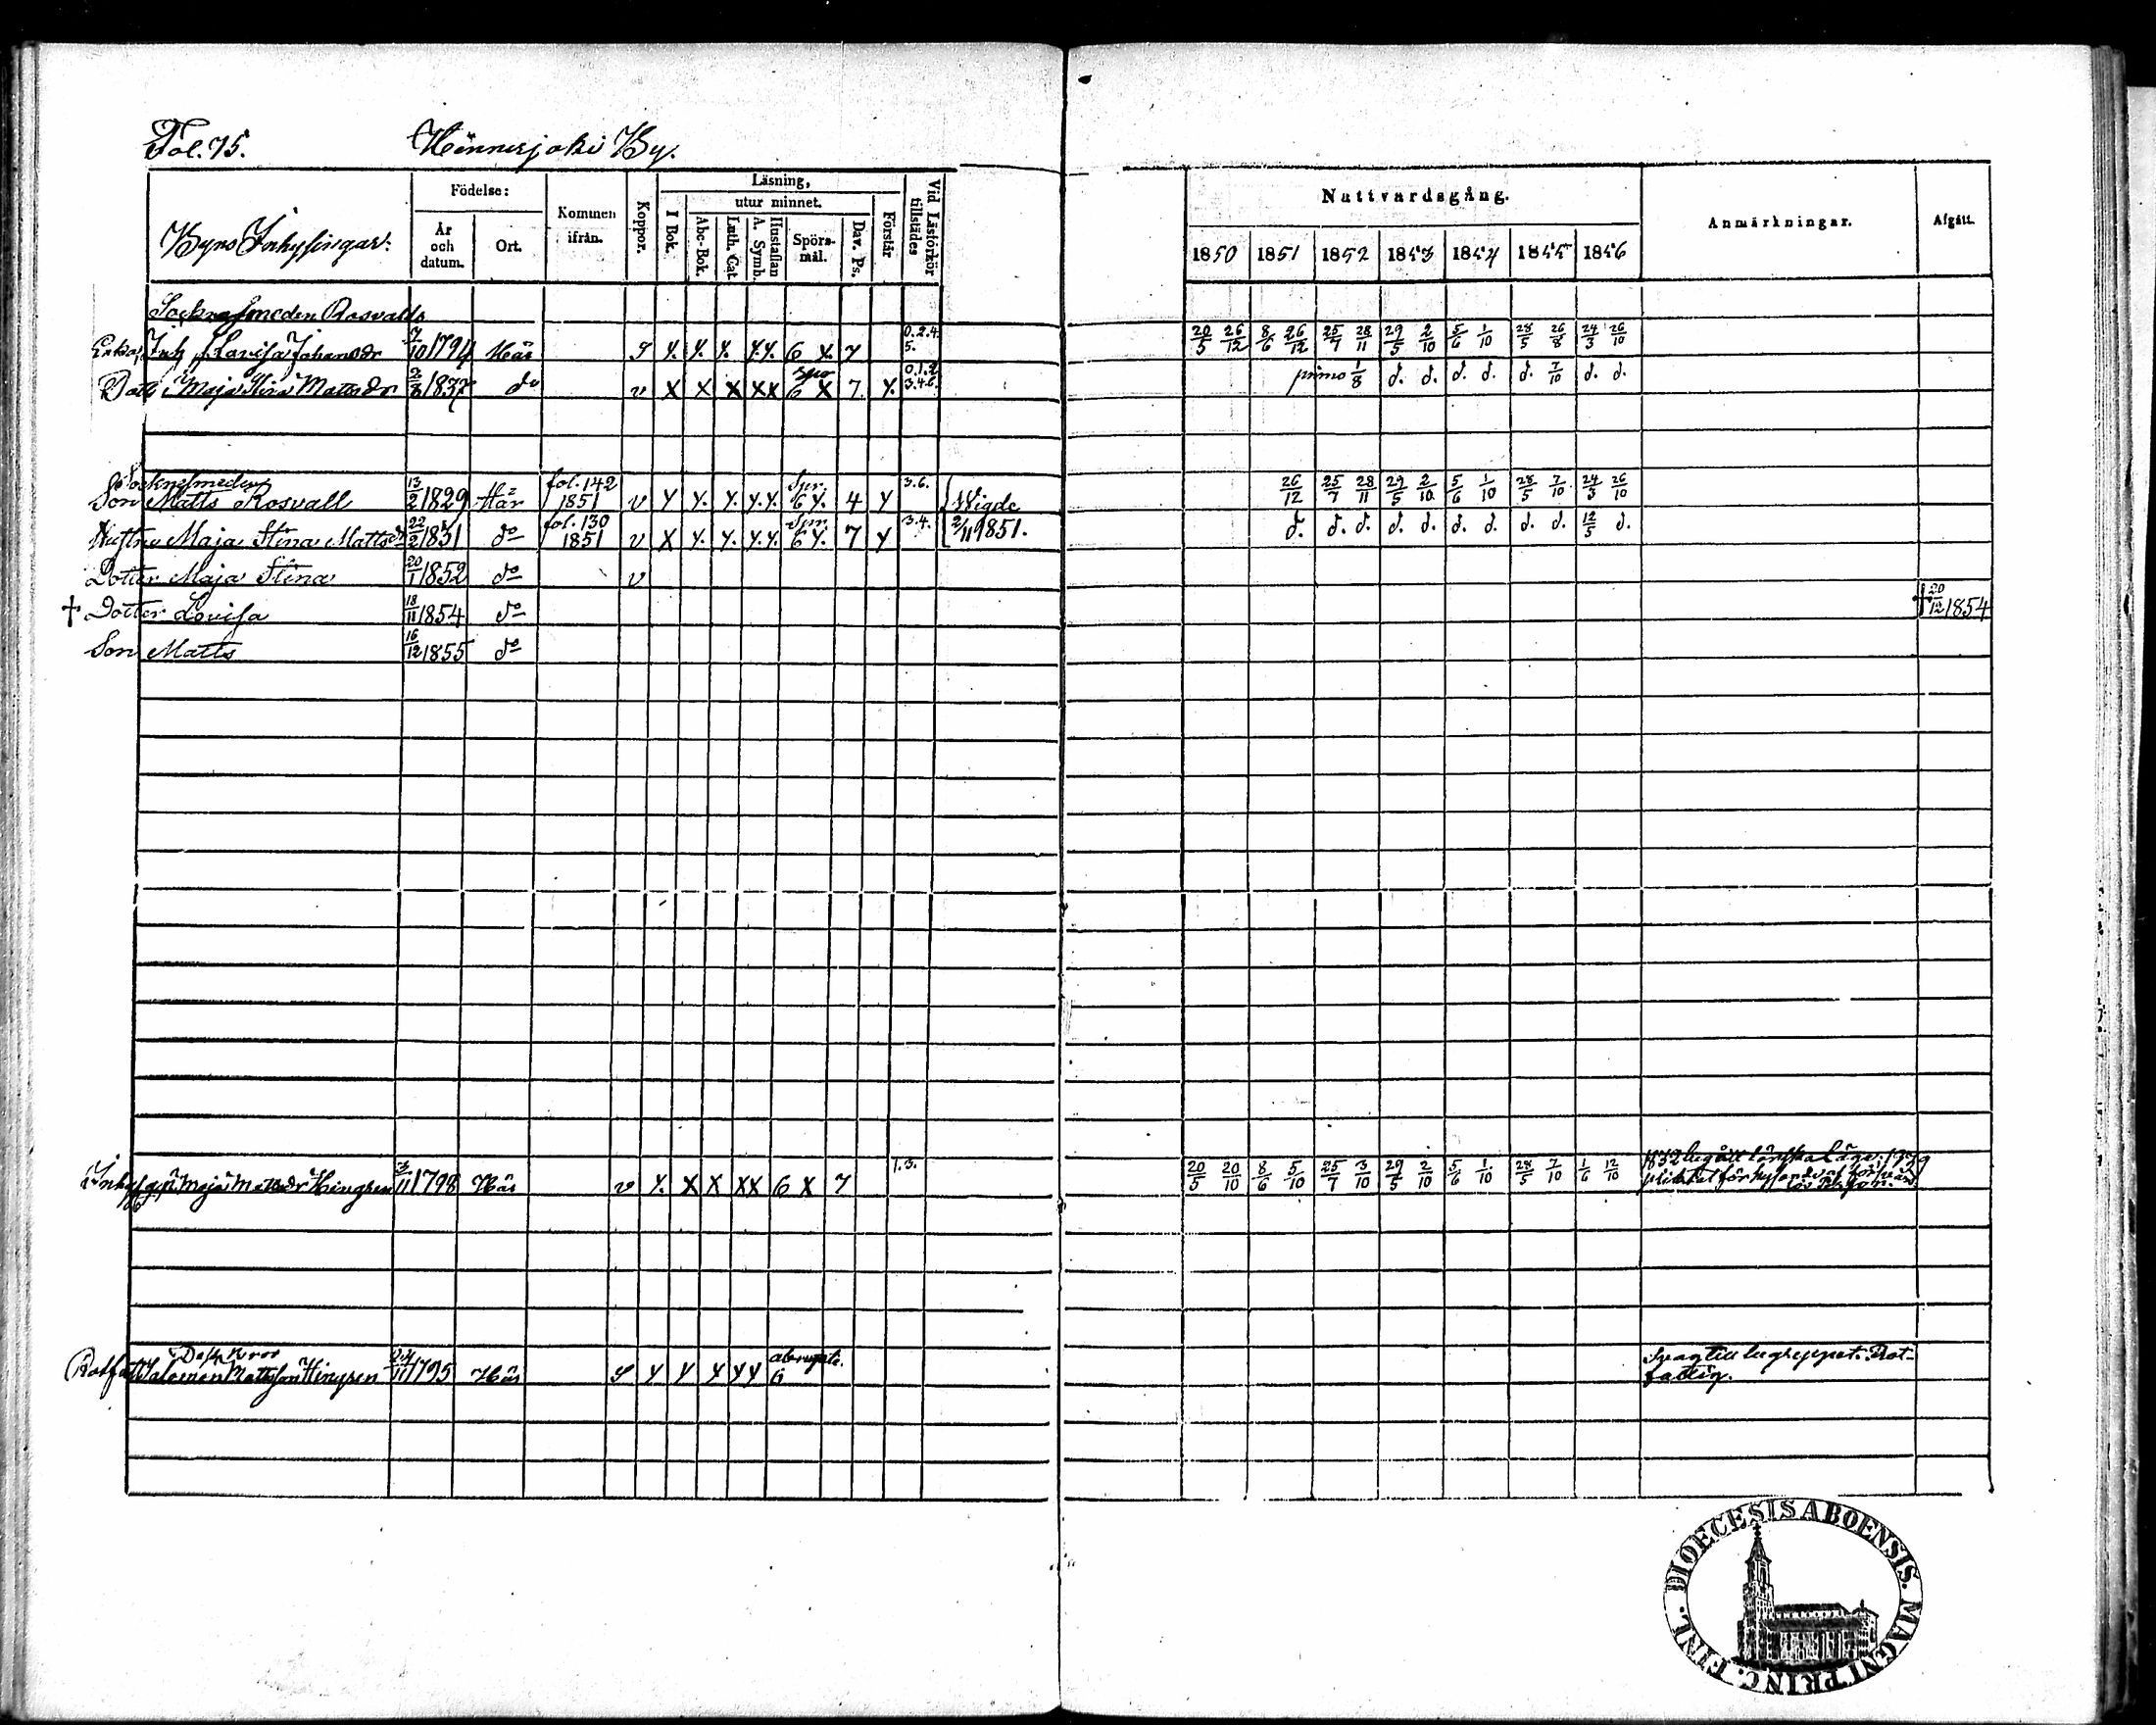 Fol. 75. Hinnerjoki By.
Byns Inhysingar:
Födelse:
År och datum.
Ort.
Kommen ifrån.
Koppor.
Läsning,
I Bok.
utur minnet.
Abc-Bok.
Luth. Cat.
A. Symb.
Hustaflan
Spörs-mål.
Dav. Ps.
Förstår
Vid Läsförhör tillstädes
Nattvardsgång.
1850 1851 1852 1853 1854 1855 1856
Anmärkningar.
Afgått.
Socknesmeden Rosvalds
Enka, Inh. Lovisa Johansdr 7/10 1794 Här S y. y. y. y.y. 6 x. 7 0.2.4. 5. 20/5 26/12 8/6 26/12 25/7 28/11 29/5 2/10 5/6 1/10 28/5 26/8 24/3 26/10
Dott. Maja Stina Mattsdr 2/8 1837 do v x x x xx 6 x 7 y. 0.1.2. 3.4.6. primo 1/8 d. d. d. d. d. 7/10 d. d.
Socknesmeden
Son Matts Rosvall 13/2 1829 Här fol. 142 1851 v y y. y. y.y. Spr. 6 y. 4 y 3.6. Wigde 26/12 25/7 28/11 29/5 2/10 5/6 1/10 28/5 7/10 24/3 26/10
Hustru Maja Stina Mattsdr 22/2 1831 do fol. 130 1851 v x y. y. y.y. Spr. 6 y. 7 y 3.4. 2/11 1851. d. d. d. d. d. d. d. d. d. 12/5 d.
Dotter Maja Stina 20/1 1852 do v
† Dotter Lovisa 18/11 1854 do † 20/12 1854
Son Matts 16/12 1855 do
Inhys Maja Mattsdr Hingsen 3/11 1798 Här v y. x x xx 6 x 7 1.3. 20/5 20/10 8/6 5/10 25/7 3/10 29/5 2/10 5/6 1/10 28/5 7/10 1/6 12/10 1832 begått
pliktat för
Salomon Mattsson Hingsen 1795 Här S y y y yy 6 Svag till begreppet. Rot-
fattig.
DIOECESIS ABOENSIS. MAGNI PRINC. FINL.